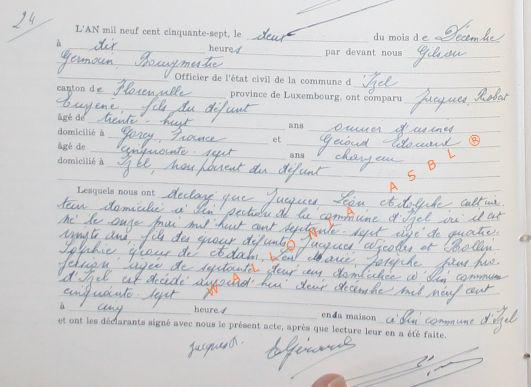 24
L'AN mil neuf cent cinquante-sept, le deux du mois de Décembre
à dix heures par devant nous Gilson
Germain, Bourgmestre
Officier de l'état civil de la commune d'Izel
canton de Florenville province de Luxembourg, ont comparu Jacques, Robert
Eugène, fils du défunt
âgé de trente-huit ans ouvrier d'usines
domicilié à Gorcy, France et Gérard Edouard
âgé de cinquante-sept ans
domicilié à Izel, non parent du défunt
Lesquels nous ont déclaré que Jacques, Léon Adolphe cultiva-
teur domicilié à Pin section de la commune d'Izel où il est
né le onze mai mil huit cent septante-sept âgé de quatre-
vingts ans, fils des époux défunts Jacques Nicolas et
Sophie époux de Adam, Marie, Josèphe sans pro-
fession, âgée de septante-deux ans domiciliée à Pin commune
d'Izel est décédé aujourd'hui deux décembre mil neuf cent
cinquante-sept
à cinq heures en la maison à Pin commune d'Izel
et ont les déclarants signé avec nous le présent acte, après que lecture leur en a été faite.
Jacques R. E Gérard
WALLONIA ASBL ®